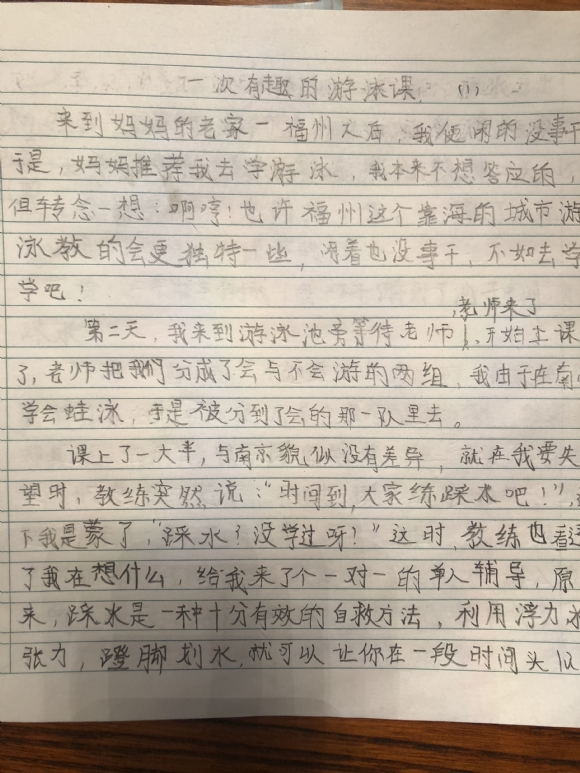 一次有趣的游泳课 (1)
来到妈妈的老家一福州之后，我便闲的没事干
于是，妈妈推荐我去学游泳，我本来不想答应的，
但转念一想：啊哼！也许福州这个靠海的城市游
泳教的会更独特一些，闲着也没事干，不如去学
学吧！
，老师来了
第二天，我来到游泳池旁等待老师，开始上课
了，老师把我们分成了会与不会游的两组，我由于在南
学会蛙泳，于是被分到了会的那一队里去。
课上了一大半，与南京貌似没有差异，就在我要失
望时，教练突然说：“时间到，大家练踩水吧！”，
下我是蒙了，“踩水？没学过呀？”这时，教练也看
了我在想什么，给我来了个一对一的单人辅导，原
来，踩水是一种十分有效的自救方法，利用浮力
张力，蹬脚划水，就可以让你在一段时间头